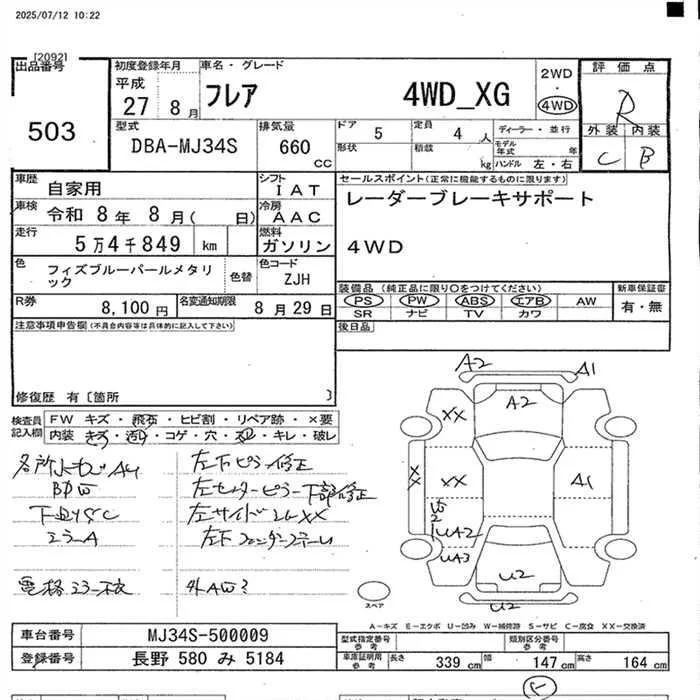 2025/07/12 10:22
[2092]
出品番号
503
初度登録年月
平成
27年 8月
車名・グレード
フレア 4WD_XG
2WD
・
4WD
評価点
R
外装 内装
C B
型式
DBA-MJ34S
排気量
660 CC
ドア 5
定員 4 人
形状
積載 kg
ディーラー・並行
モデル年式 年
ハンドル 左・右
車歴 自家用
シフト IAT
車検 令和 8年 8月( 日)
冷房 AAC
走行 5万4千849 km
燃料 ガソリン
色 フィズブルーパールメタリック
色替
色コード ZJH
R券 8,100円
名変通知期限 8月29日
セールスポイント(正常に機能するものに限ります)
レーダーブレーキサポート
4WD
装備品 (純正品に限り○をつけてください)
PS PW ABS エアB AW
SR ナビ TV カワ
新車保証書
有・無
後日品
注意事項申告欄(不具合内容等は具体的に記入して下さい)
修復歴 有〔箇所 〕
検査員記入欄
FW キズ・飛石・ヒビ割・リペア跡・×要
内装 キズ・汚れ・コゲ・穴・ヌレ・キレ・破レ
下回りSC
ミラーA
左下ピラー修正
左センターピラー下部修正
左サイドシルXX
電格ミラー不良
外AW?
A2
A1
A2
XX
XX
XX
A1
UA2
UA3
U2
U2
スペア
A-キズ E-エクボ U-凹み W-補修跡 S-サビ C-腐食 XX-交換済
車台番号 MJ34S-500009
登録番号 長野 580 み 5184
型式指定番号 参考
類別区分番号 参考
車庫証明用 参考
長さ 339 cm
幅 147 cm
高さ 164 cm